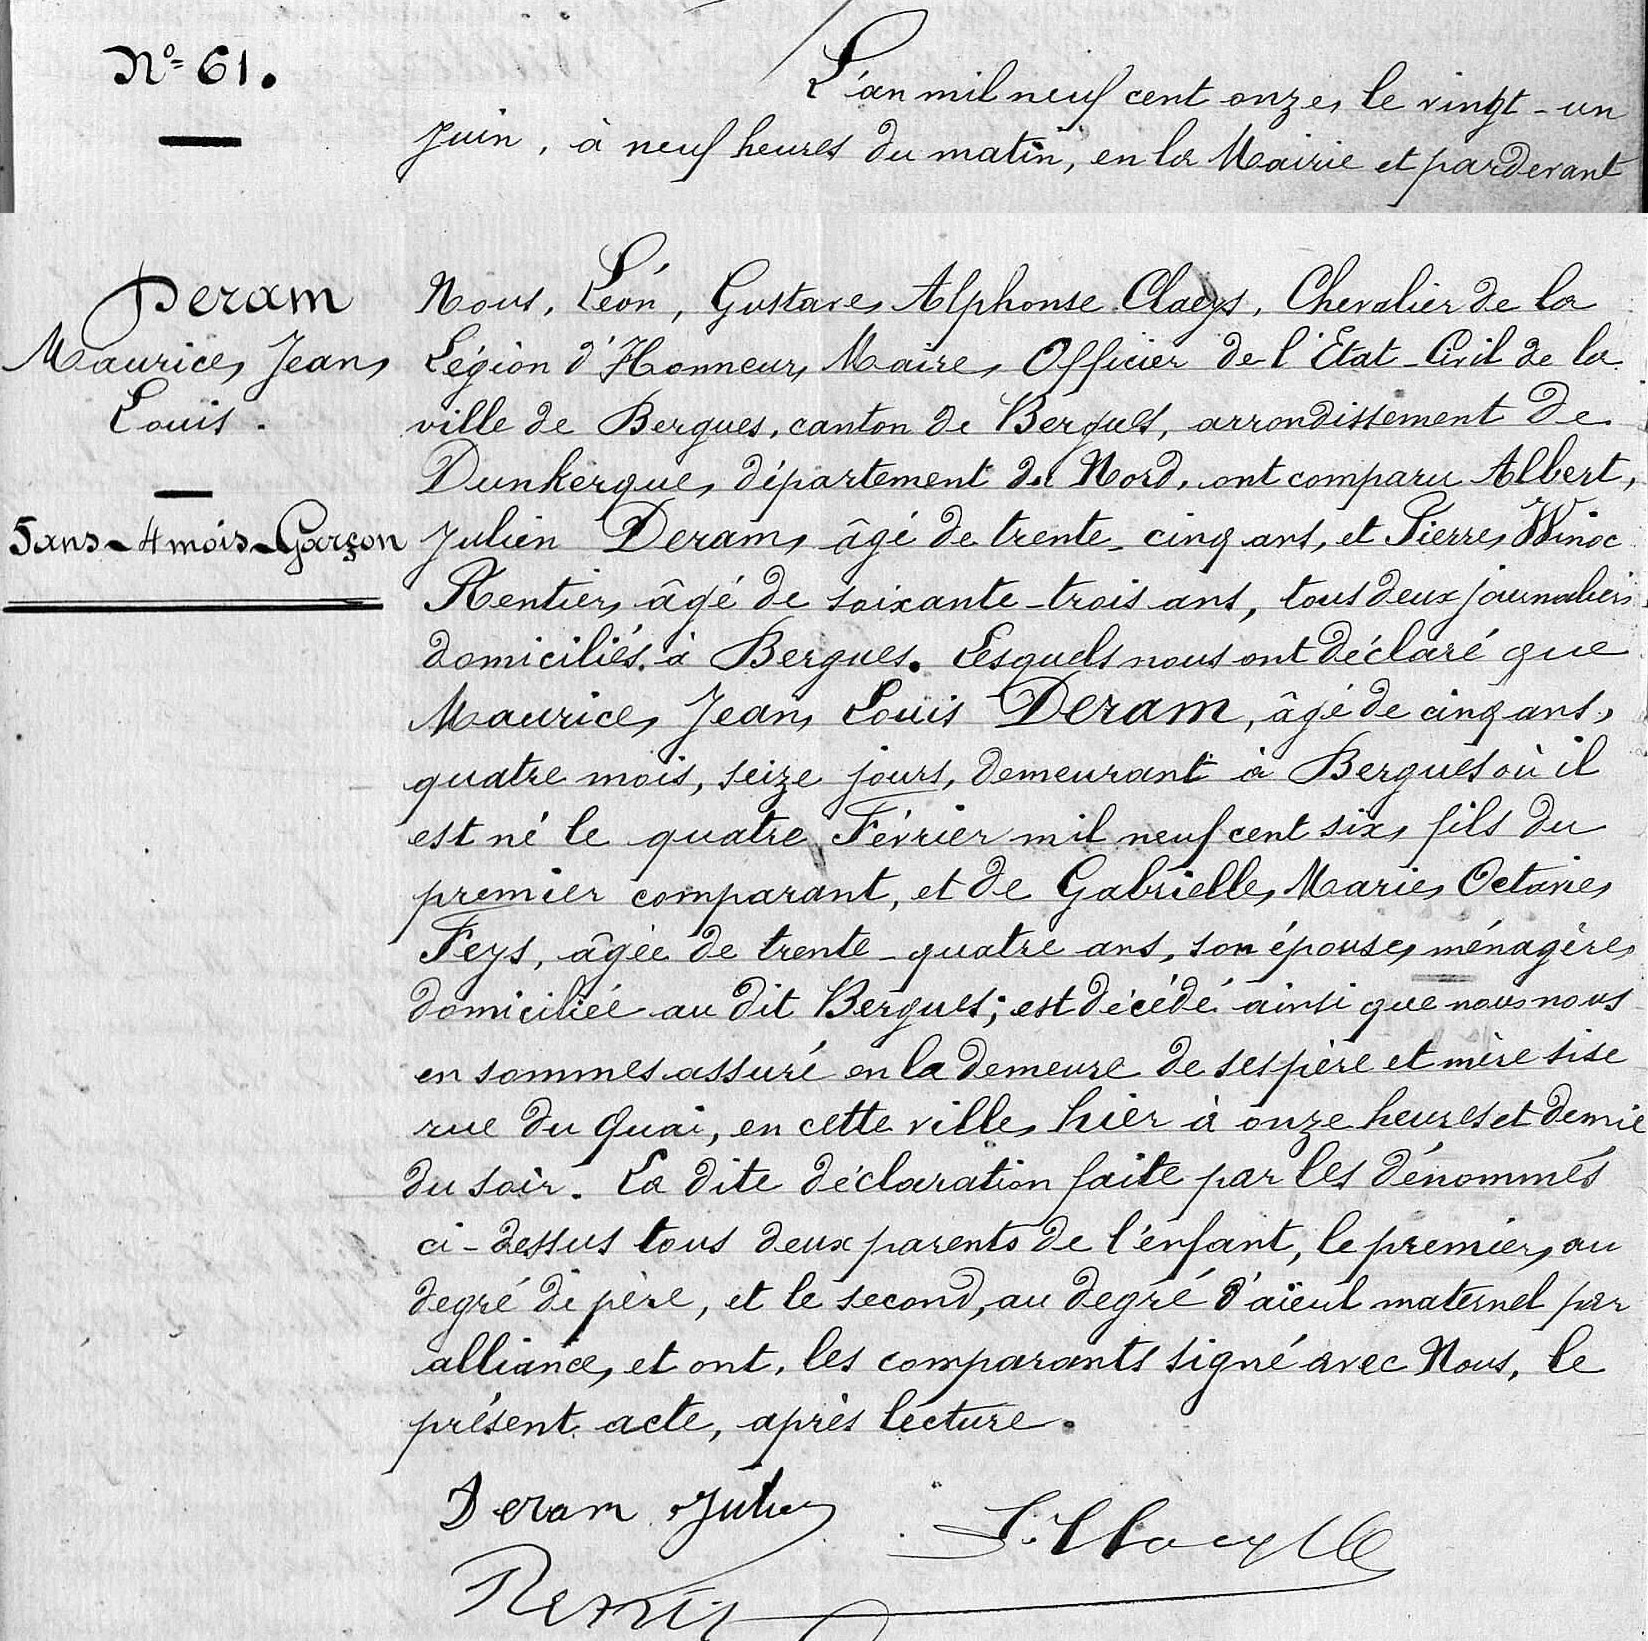 Nº 61.
L'an mil neuf cent onze, le vingt-un
Juin, à neuf heures du matin, en la Mairie et pardevant
Deram
Maurice, Jean,
Louis.
5 ans - 4 mois - Garçon
Nous, Léon, Gustave, Alphonse Claeys, Chevalier de la
Légion d'Honneur, Maire, Officier de l'Etat-Civil de la
ville de Bergues, canton de Bergues, arrondissement de
Dunkerque, département du Nord, ont comparu Albert,
Julien Deram, âgé de trente-cinq ans, et Pierre, Winoc
Rentier, âgé de soixante-trois ans, tous deux journaliers
domiciliés à Bergues. Lesquels nous ont déclaré que
Maurice, Jean, Louis Deram, âgé de cinq ans,
quatre mois, seize jours, demeurant à Bergues où il
est né le quatre Février mil neuf cent six, fils du
premier comparant, et de Gabrielle, Marie, Octavie,
Feys, âgée de trente-quatre ans, son épouse, ménagère,
domiciliée au dit Bergues; est décédé ainsi que nous nous
en sommes assuré en la demeure de ses père et mère sise
rue du Quai, en cette ville, hier à onze heures et demie
du soir. La dite déclaration faite par les dénommés
ci-dessus tous deux parents de l'enfant, le premier, au
degré de père, et le second, au degré d'aïeul maternel par
alliance, et ont, les comparants signé avec Nous, le
présent acte, après lecture.
Deram Julien
L. Claeys
Rentier